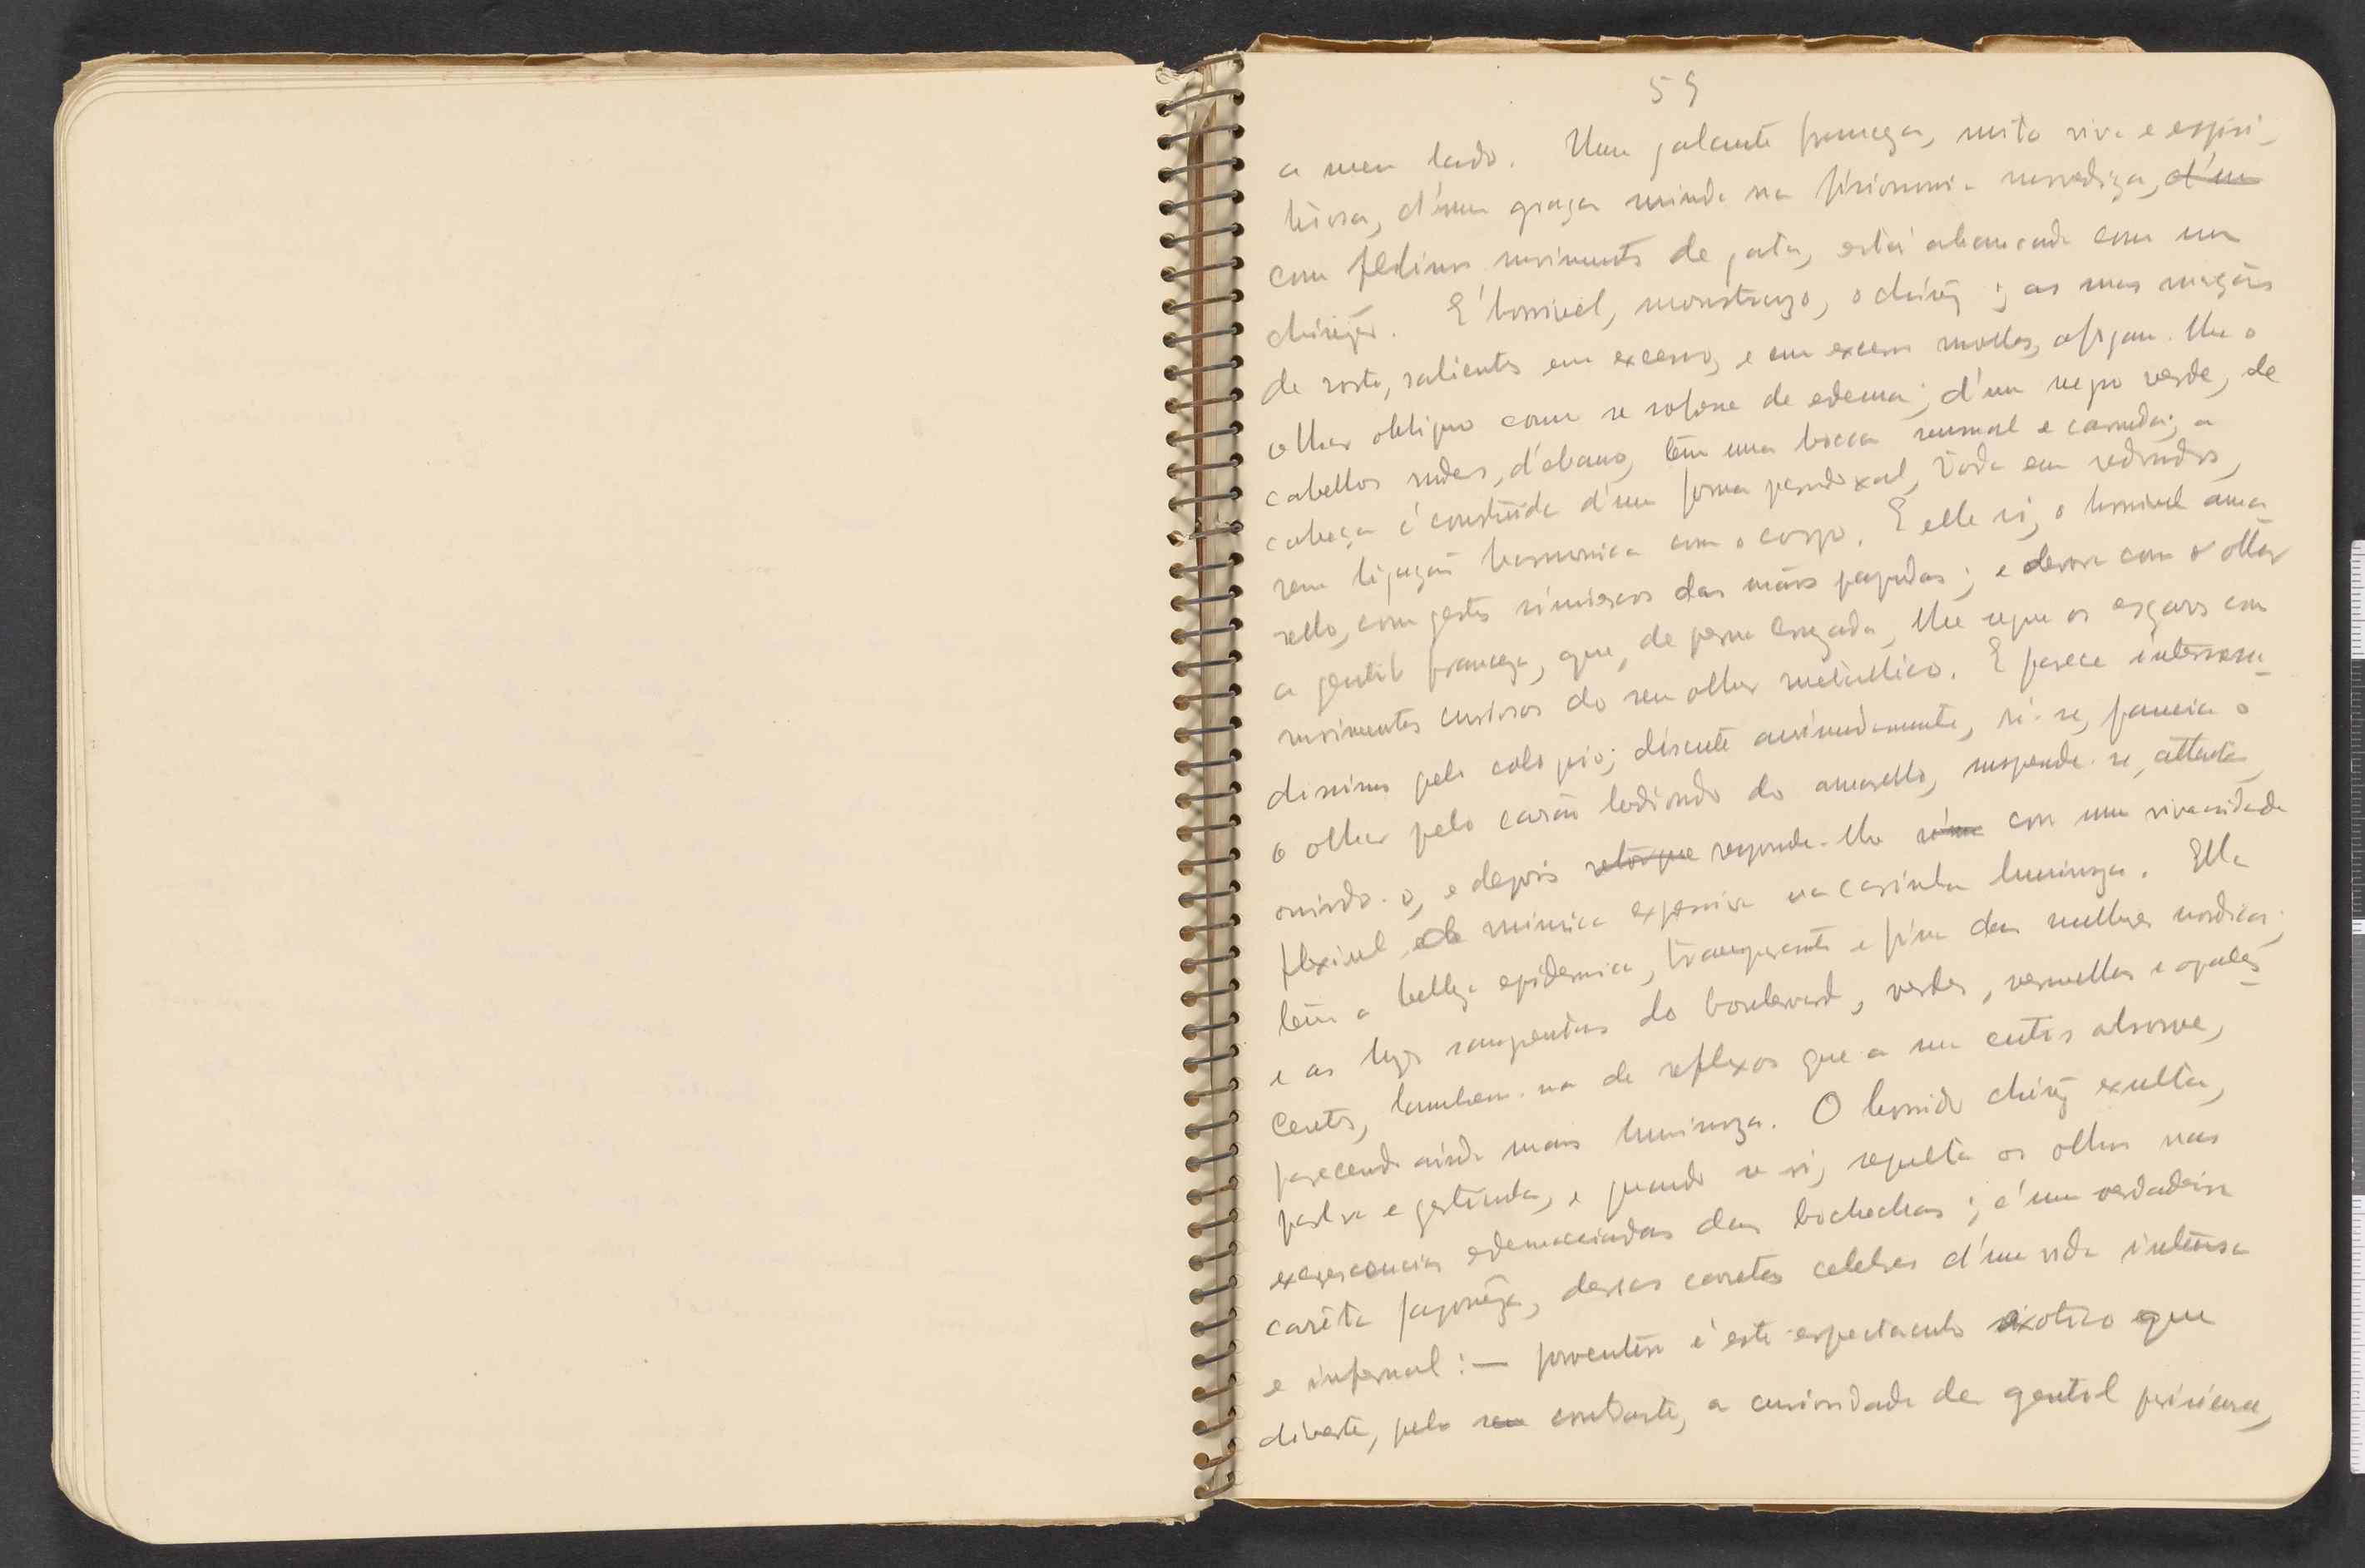 59
a meu lado. Uma galante franceza, muito viva e espiri-
tuosa, d'uma graça miuda na fisionomia movediça, d'um
com felinos movimentos de gata, está abancada com um
chinez. E' horrivel, monstruozo, o chinez; as suas maçãs
de rosto, salientes em excesso, e em excesso molles, afogam-lhe o
olhar obliquo como se sofresse de edema; d'um negro verde, de
cabellos rudes, d'ebano, tem uma bocca sensual e carnuda; a
cabeça é construida d'uma forma paradoxal, toda em redondos,
sem ligação harmonica com o corpo. E elle ri, o horrivel ama-
rello, com gestos simiescos das mãos papudas; e devora com o olhar
a gentil franceza, que, de perna cruzada, lhe segue os esgares com
movimentos curiosos do seu olhar metallico. E parece interessa-
dissima pelo coloquio; discute animadamente, ri-se, passeia o
o olhar pelo carão hediondo do amarello, suspende-se, attenta,
ouvindo-o, e depois retorque responde-lhe n'uma com uma vivacidade
flexivel, e de mimica expressiva na carinha luminoza. Ella
tem a belleza epidermica, transparente e fina das mulheres nordicas;
e as luzes rompentes do boulevard, verdes, vermelhas e opales-
centes, lambem-na de reflexos que a sua cutis absorve,
parecendo ainda mais luminoza. O horrido chinez exulta,
palra e gesticula, e quando se ri, sepulta os olhos nas
excrescencias edemaciadas das bochechas; é uma verdadeira
careta japoneza, dessas caretas celebres d'uma vida intensa
e infernal: — porventura é este espectaculo exotico que
diverte, pelo seu contraste, a curiosidade da gentil parisiense,